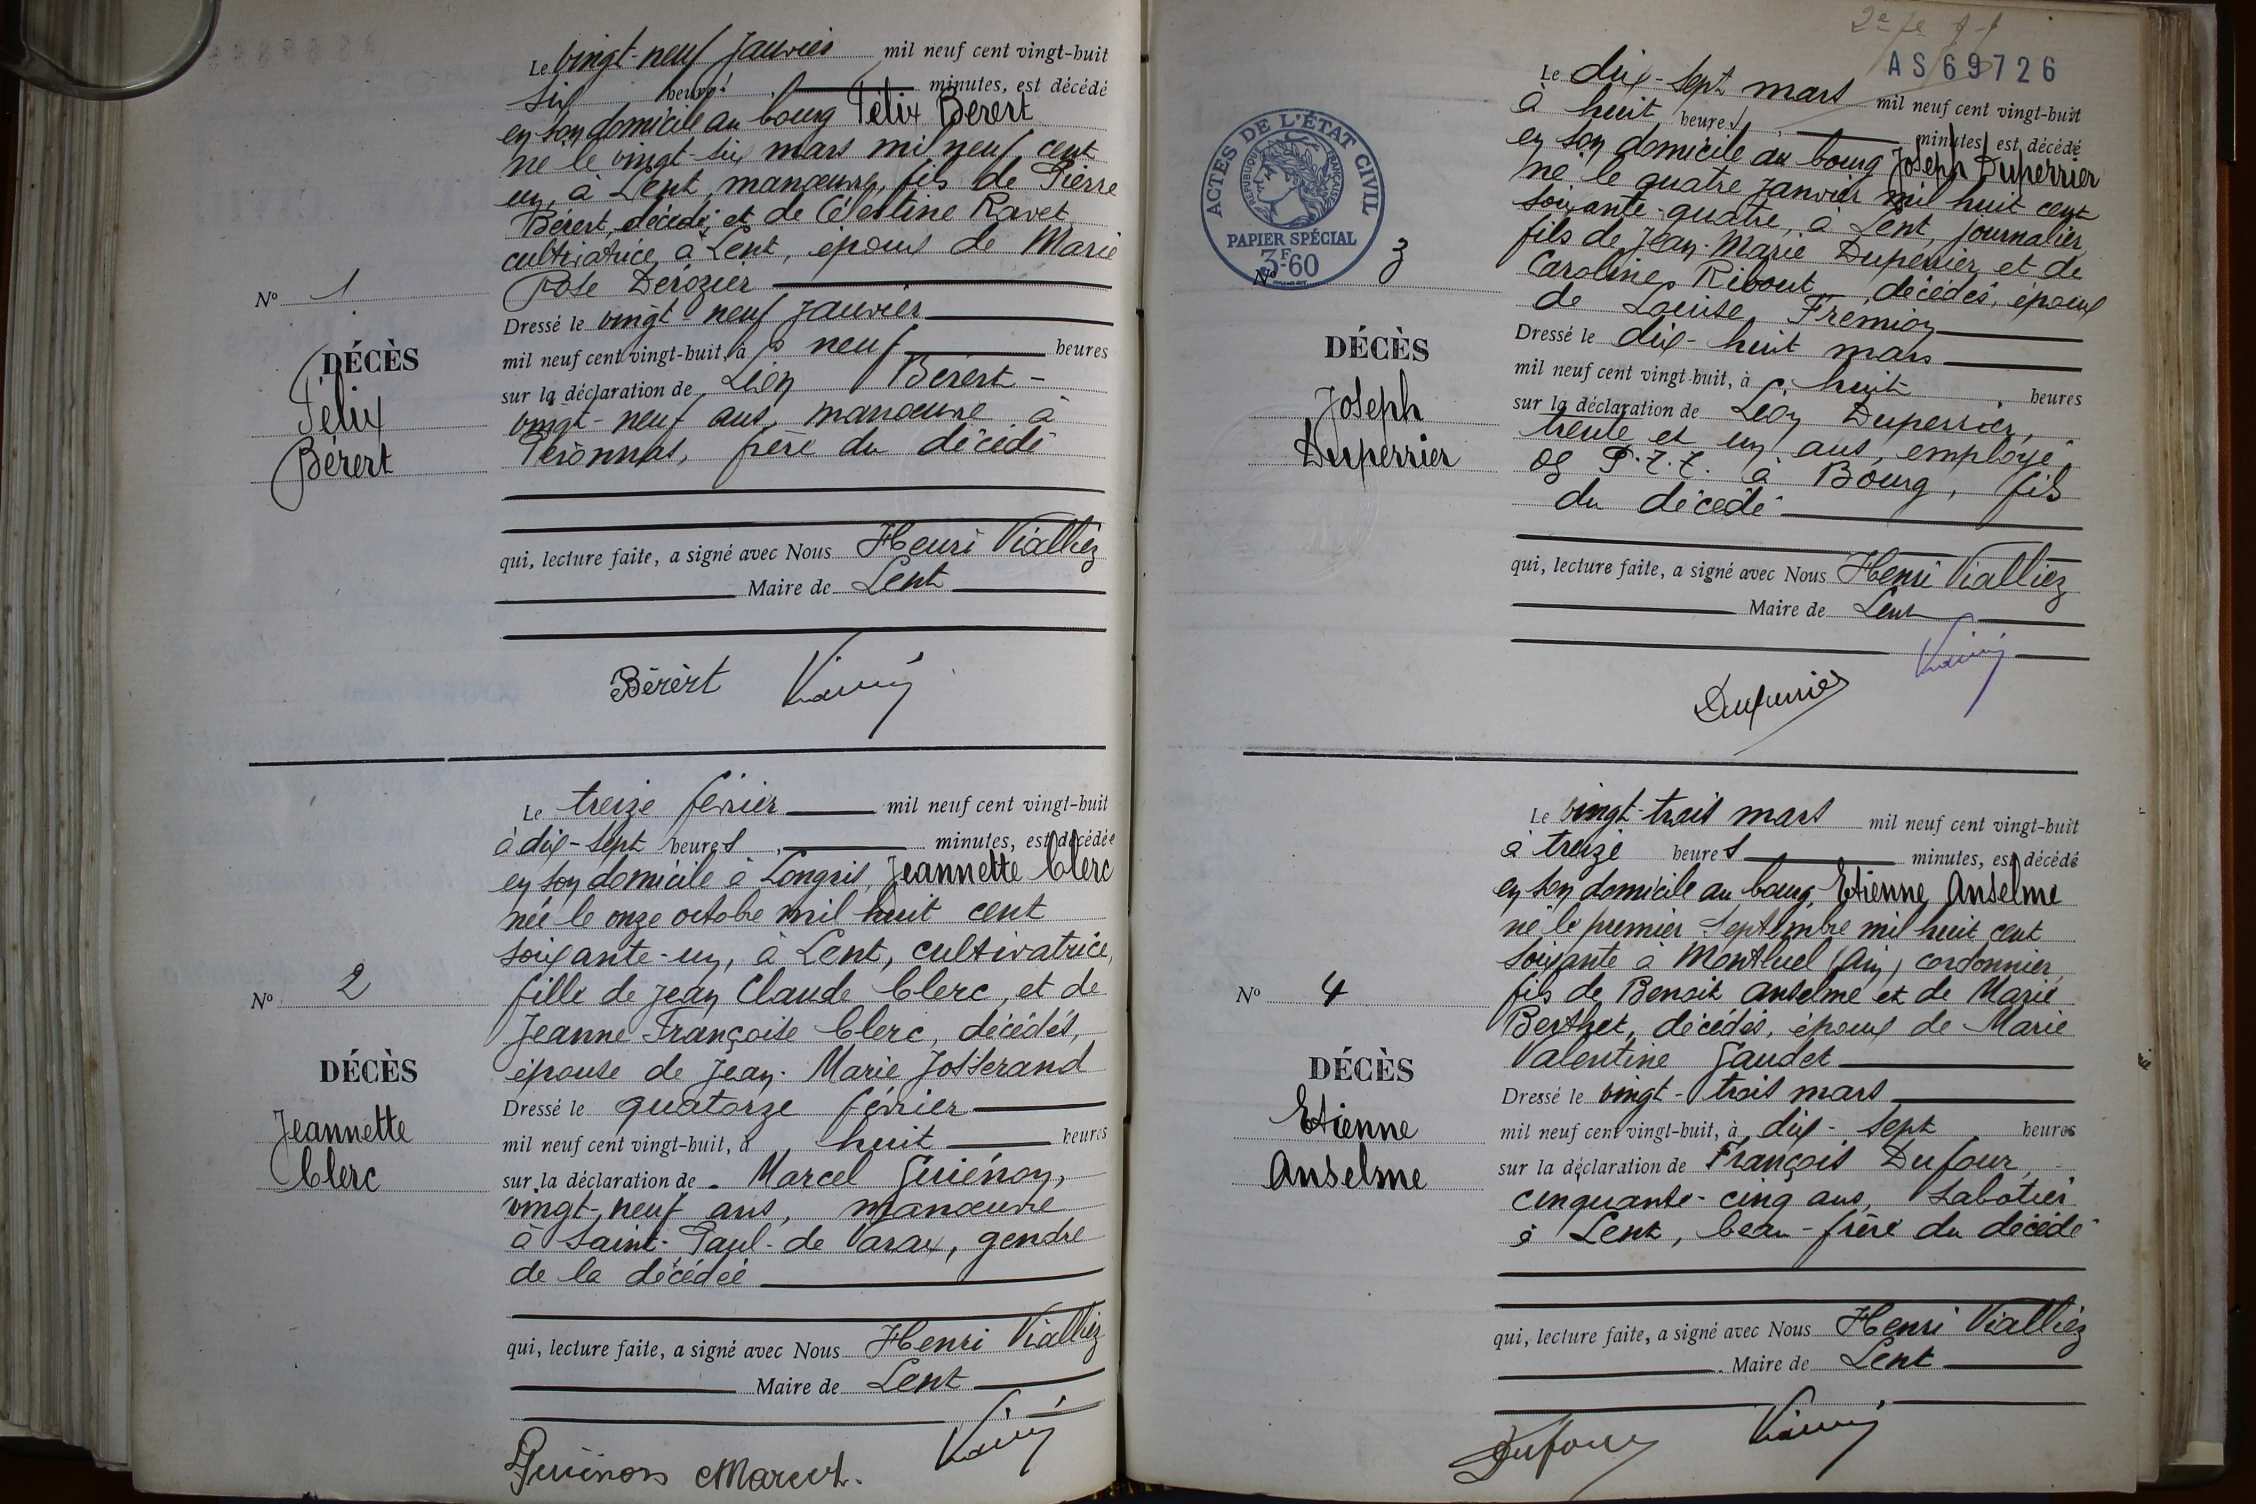 Le vingt-neuf janvier mil neuf cent vingt-huit
six heures minutes, est décédé
en son domicile au bourg Félix Bérert
né le vingt-six mars mil neuf cent
un, à Lent, manœuvre, fils de Pierre
Bérert, décédé, et de Célestine Ravet
cultivatrice à Lent, époux de Marie
Rose Dérozier
Nº 1
Dressé le vingt-neuf janvier
mil neuf cent vingt-huit, à neuf heures
DÉCÈS
sur la déclaration de Léon Bérert
Félix
vingt-neuf ans, manœuvre à
Bérert
Péronnas, frère du décédé
qui, lecture faite, a signé avec Nous Henri Vialliez
Maire de Lent
Bérert
Le treize février mil neuf cent vingt-huit
à dix-sept heures minutes, est décédée
en son domicile à Longris, Jeannette Clerc
née le onze octobre mil huit cent
soixante-un, à Lent, cultivatrice,
fille de Jean Claude Clerc, et de
Nº 2
Jeanne Françoise Clerc, décédés,
épouse de Jean-Marie Josserand
DÉCÈS
Dressé le quatorze février
Jeannette
mil neuf cent vingt-huit, à huit heures
Clerc
sur la déclaration de Marcel Guiénon,
vingt-neuf ans, manœuvre
à Saint-Paul-de Varax, gendre
de la décédée
qui, lecture faite, a signé avec Nous Henri Vialliez
Maire de Lent
Guiénon Marcel
AS69726
ACTES DE L'ÉTAT CIVIL
RÉPUBLIQUE FRANÇAISE
PAPIER SPÉCIAL
3F60
Le dix-sept mars mil neuf cent vingt-huit
à huit heures minutes est décédé
en son domicile au bourg Joseph Duperrier
né le quatre janvier mil huit cent
soixante-quatre, à Lent, journalier
fils de Jean-Marie Duperrier et de
Nº 3
Caroline Ribout, décédés, époux
de Louise Frémion
DÉCÈS
Dressé le dix-huit mars
mil neuf cent vingt-huit, à huit heures
Joseph
sur la déclaration de Léon Duperrier,
Duperrier
trente et un ans, employé
P.T.T. à Bourg, fils
du décédé
qui, lecture faite, a signé avec Nous Henri Vialliez
Maire de Lent
Duperrier
Le vingt-trois mars mil neuf cent vingt-huit
à treize heures minutes, est décédé
en son domicile au bourg, Etienne Anselme
né le premier septembre mil huit cent
soixante à Montluel (Ain) cordonnier,
Nº 4
fils de Benoit Anselme et de Marie
Berthet, décédés, époux de Marie
Valentine Gaudet
DÉCÈS
Dressé le vingt-trois mars
Etienne
mil neuf cent vingt-huit, à dix-sept heures
Anselme
sur la déclaration de François Dufour,
cinquante-cinq ans, sabotier
à Lent, beau-frère du décédé
qui, lecture faite, a signé avec Nous Henri Vialliez
Maire de Lent
Dufour